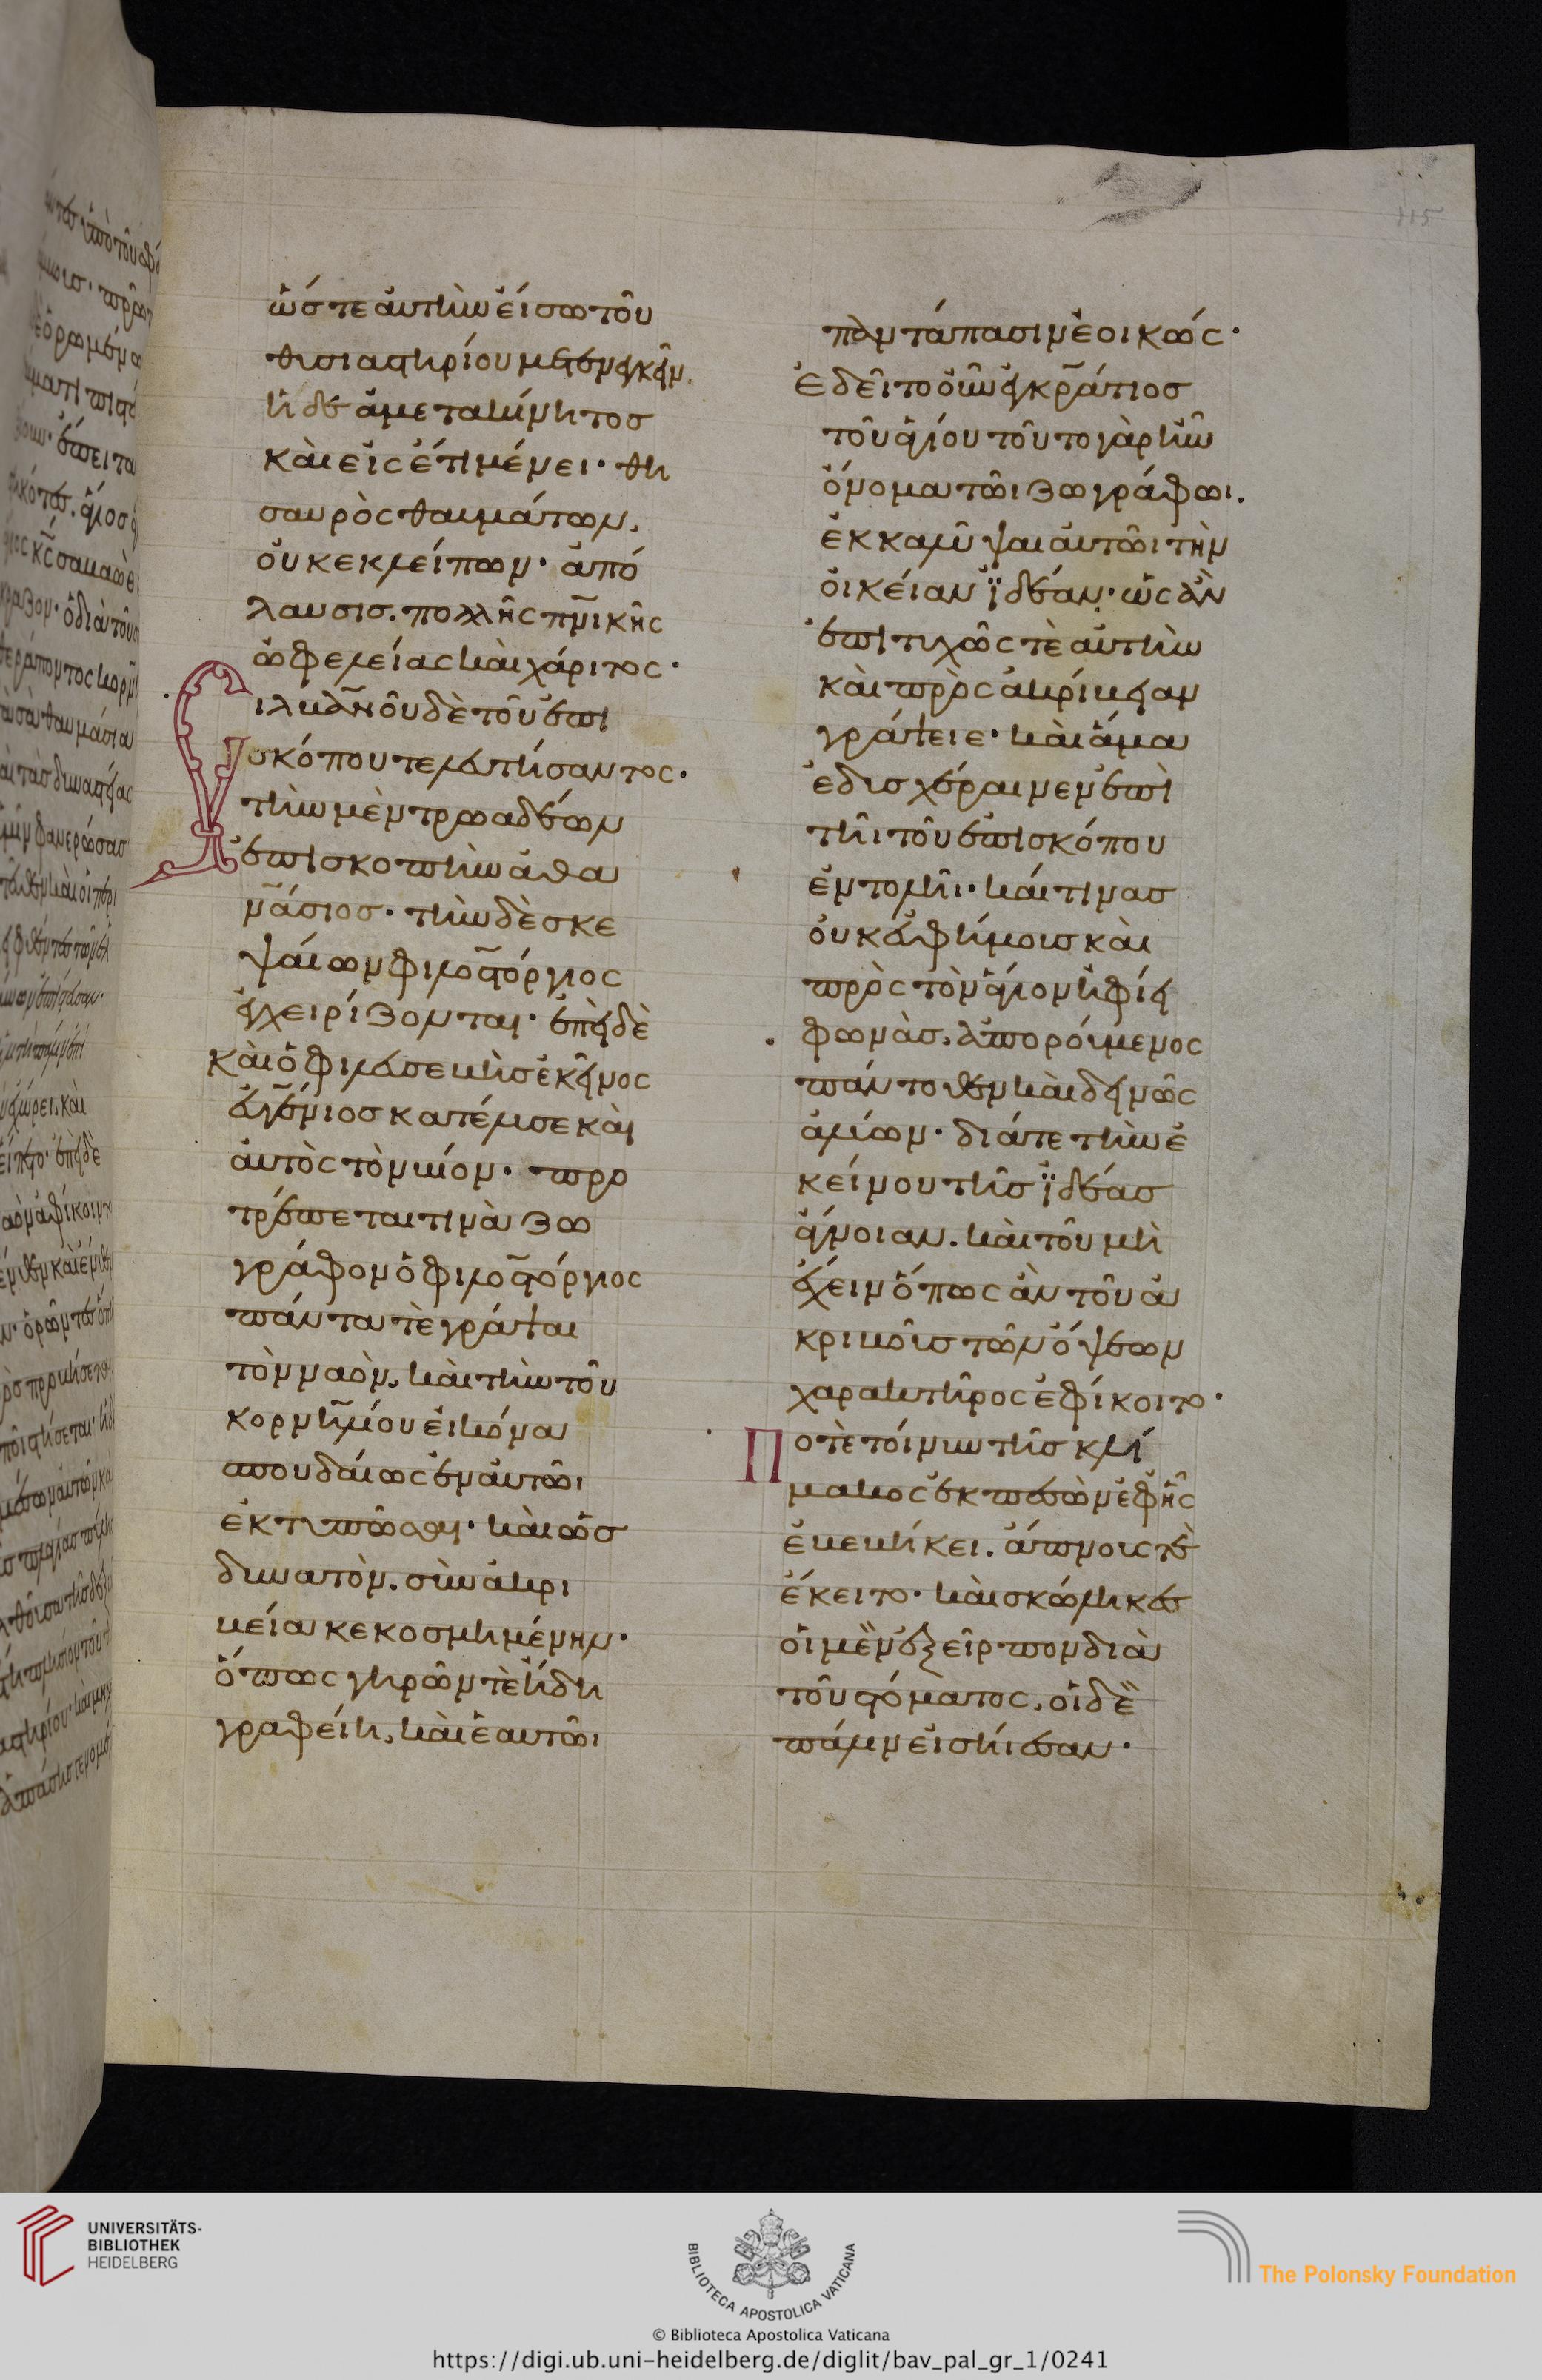 ὥστε αὐτὴν εἴσω τοῦ
θυσιαστηρίου μετενεγκεῖν.
ἡ δὲ ἀμετακίνητος
καὶ εἰς ἔτι μένει· θη
σαυρὸς θαυμάτων,
οὐκ ἐκλείπων· ἀπό
λαυσις. πολλῆς πνικῆς
ὠφελείας καὶ χάριτος·
Σιλβανοῦ δὲ τοῦ ἐπι
σκόπου τελευτήσαντος·
τὴν μὲν τρωαδέων
ἐπισκοπὴν ἀθα
νάσιος· τὴν δὲ σκε
ψαίων φιλοστόργιος
ἐγχειρίζονται· ἐπεὶ δὲ
καὶ ὁ φιλευσεβὴς ἐκεῖνος
εὐγένιος κατέλυσε καὶ
αὐτὸς τὸν βίον· προ
τρέπεται τινὰ ζω
γράφον ὁ φιλοστόργιος
πάντα τὲ γράψαι
τὸν ναὸν, καὶ τὴν τοῦ
κορνηλίου εἰκόνα
σπουδαίως ἐν αὐτῶι
ἐκτυπῶσαι· καὶ ὡς
δυνατὸν. σὺν ἀκρι
βεία κεκοσμημένην·
ὅπως γηρῶν τὲ ἤδη
γραφείη, καὶ ἑαυτῶι
παντάπασιν ἐοικώς·
Ἐδεῖτο οὖν ἐγκράτιος
τοῦ ἁγίου τοῦτο γὰρ ἦν
ὄνομα τῶι ζωγράφωι.
ἐκκαλύψαι αὐτῶι τὴν
οἰκείαν ϊδέαν· ὡς ἂν
ἐπιτυχῶς τὲ αὐτὴν
καὶ πρὸς ἀκρίβειαν
γράψειε· καὶ ἅμα
ἐδυσχέραινεν ἐπὶ
τῆι τοῦ ἐπισκόπου
ἐντολῆι· καί τινας
οὐκ εὐφήμους καὶ
πρὸς τὸν ἅγιον ἠφίει
φωνὰς, ἀπορούμενος
πάντοθεν καὶ δεινῶς
ἀλύων· διά τε τὴν ἐ
κείνου τῆς ϊδέας
ἄγνοιαν. καὶ τοῦ μὴ
ἔχειν ὅπως ἂν τοῦ ἀ
κριβοῦς τῶν ὄψεων
χαρακτῆρος ἐφίκοιτο·
Ποτὲ τοίνυν τῆς κλί
μακος ἐκπεσὼν ἐφ ἧς
ἐβεβήκει. ἄπνους τὲ
ἔκειτο· καὶ σκώληκες
οἱ μὲν ἐξεῖρπον διὰ
τοῦ στόματος, οἱ δὲ
πάλιν εἰσήεσαν·
115
UNIVERSITÄTS-
BIBLIOTHEK
HEIDELBERG
BIBLIOTECA APOSTOLICA VATICANA
The Polonsky Foundation
© Biblioteca Apostolica Vaticana
https://digi.ub.uni-heidelberg.de/diglit/bav_pal_gr_1/0241